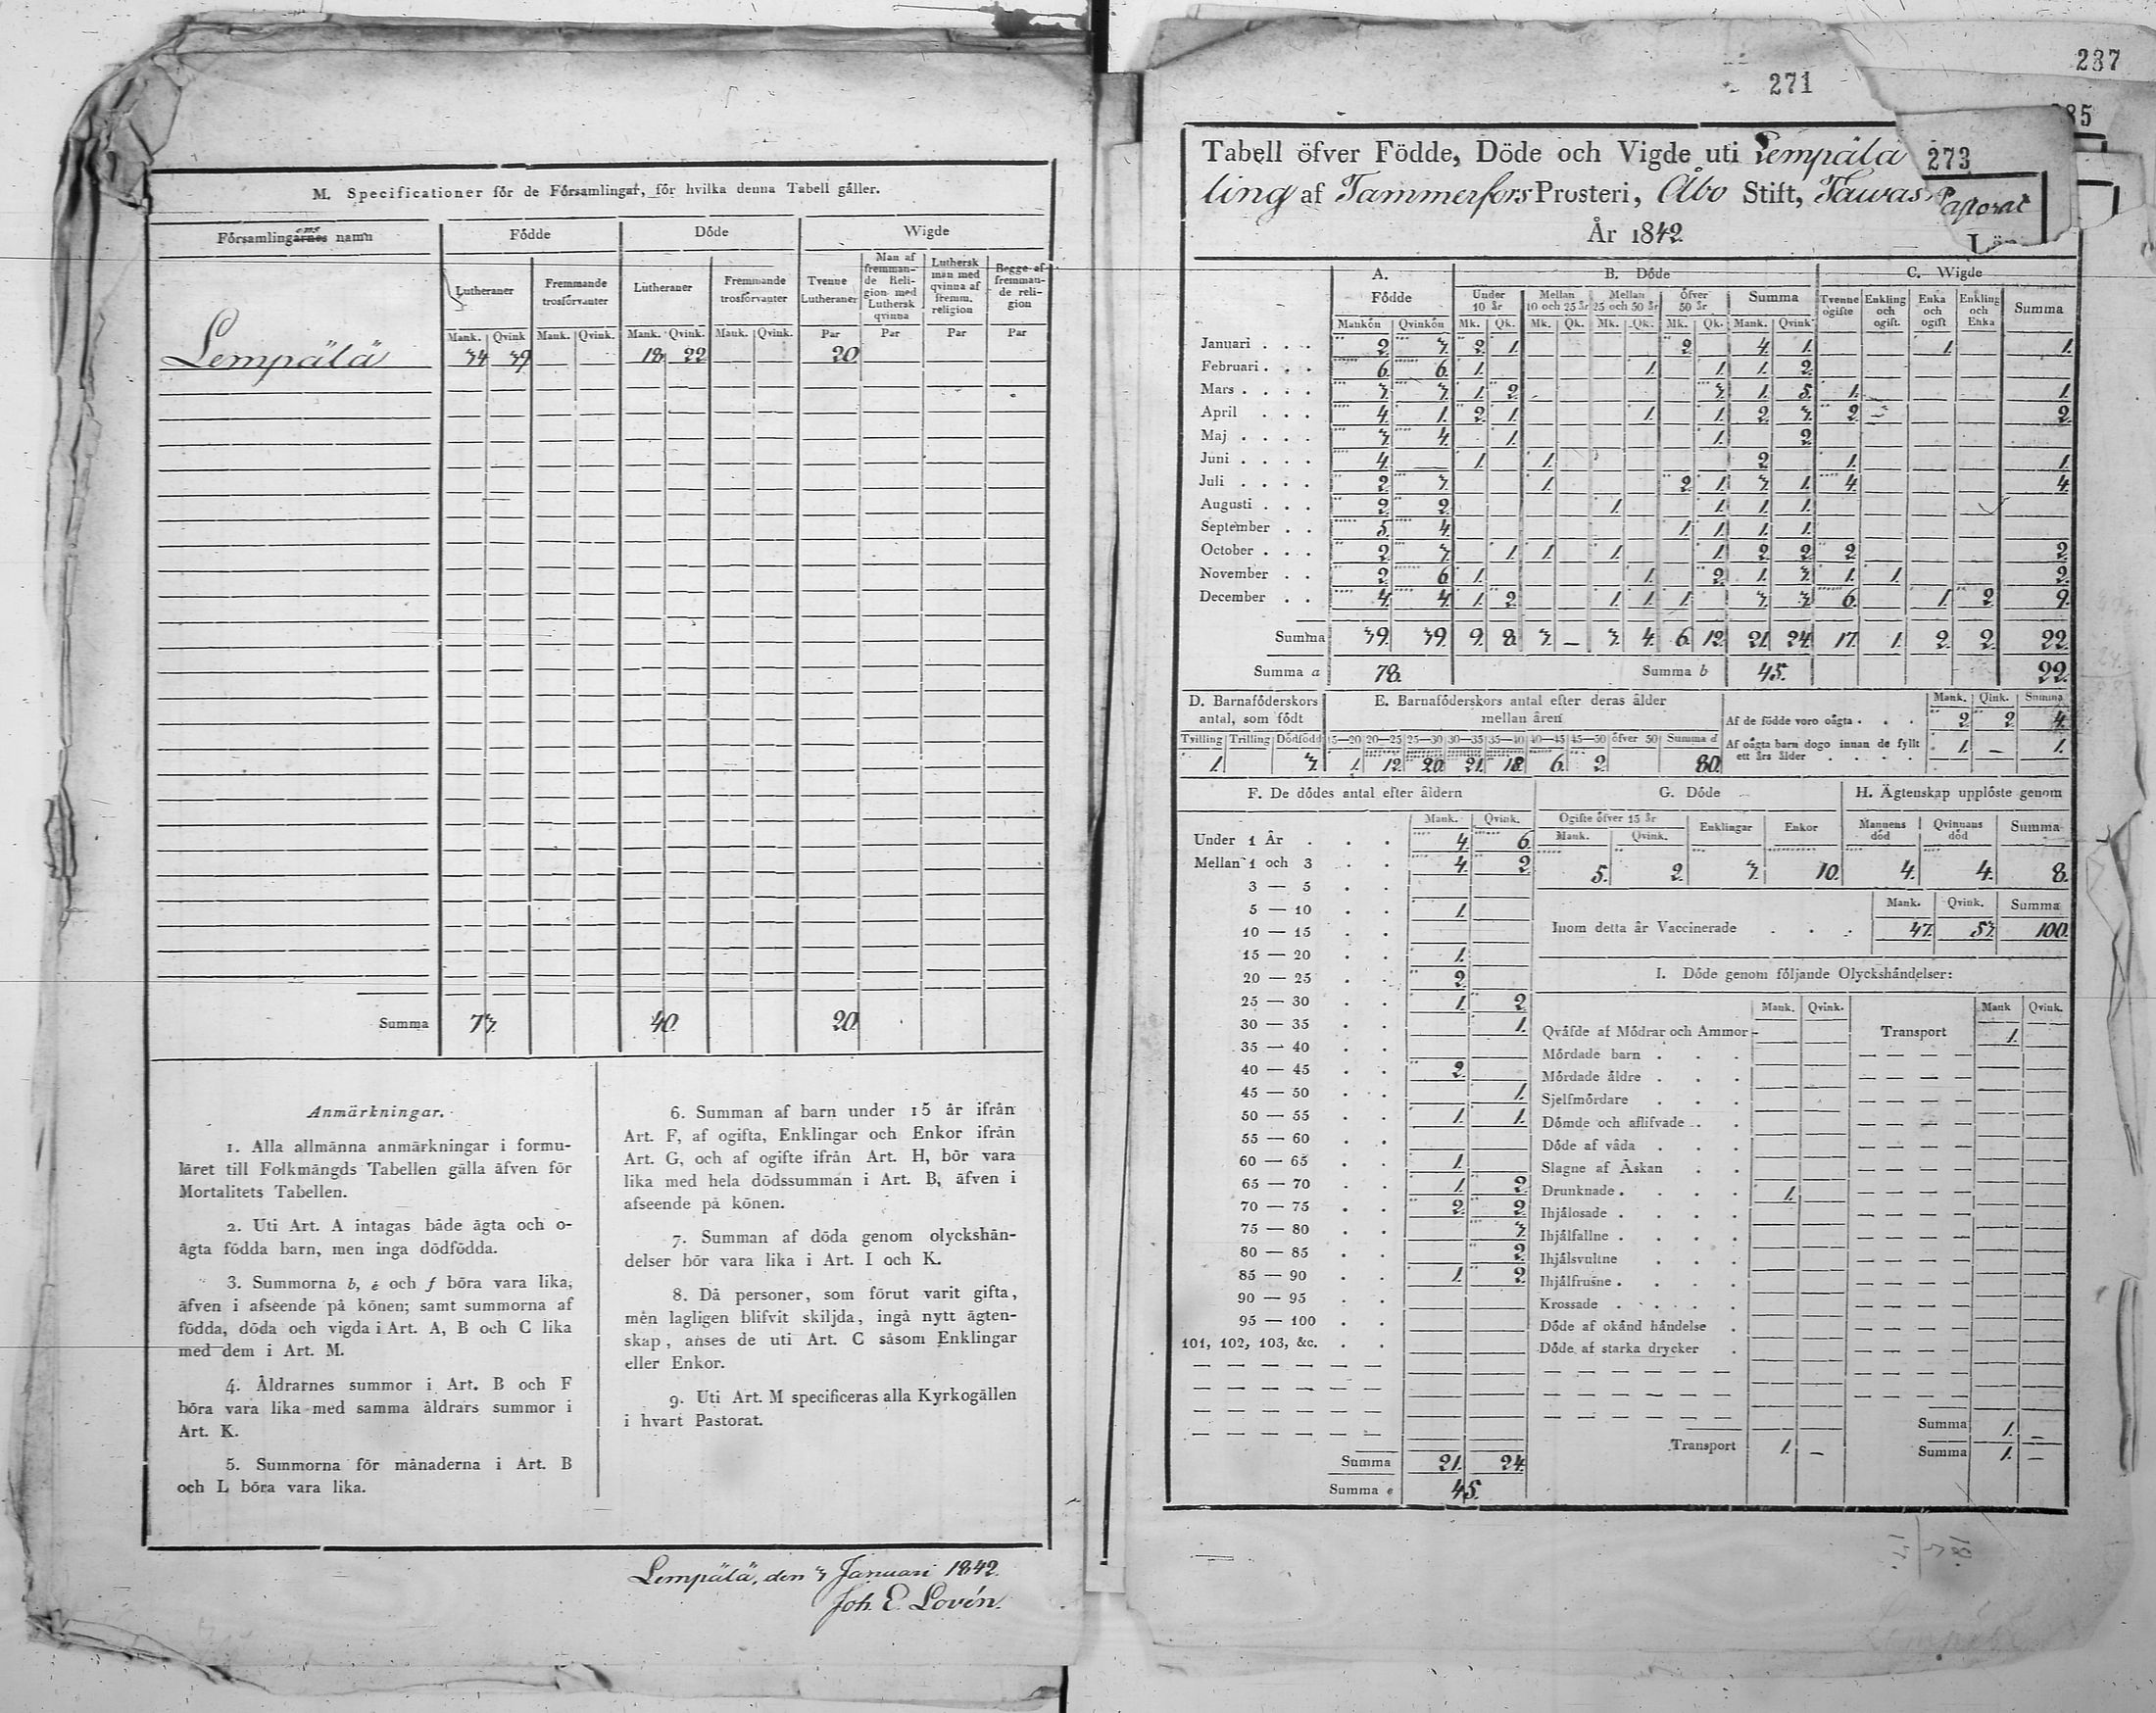 M. Specificationer för de Församlingar, för hvilka denna Tabell gäller.
Församlingarnes namn
ens
Födde
Döde
Wigde
Lutheraner
Fremmande trosförvanter
Lutheraner
Fremmande trosförvanter
Tvenne Lutheraner
Man af fremmande Religion med Luthersk qvinna
Luthersk man med qvinna af fremm. religion
Begge af fremmande religion
Mank. Qvink Mank. Qvink. Mank. Qvink. Mank. Qvink. Par Par Par Par
Lempälä 34 39 18 22 20
Summa 73. 40. 20
Anmärkningar.
1. Alla allmänna anmärkningar i formu-
läret till Folkmängds Tabellen gälla äfven för
Mortalitets Tabellen.
2. Uti Art. A intagas både ägta och o-
ägta födda barn, men inga dödfödda.
3. Summorna b, e och f böra vara lika,
äfven i afseende på könen; samt summorna af
födda, döda och vigda i Art. A, B och C lika
med dem i Art. M.
4. Åldrarnes summor i Art. B och F
böra vara lika med samma åldrars summor i
Art. K.
5. Summorna för månaderna i Art. B
och L böra vara lika.
6. Summan af barn under 15 år ifrån
Art. F, af ogifta, Enklingar och Enkor ifrån
Art. G, och af ogifte ifrån Art. H, bör vara
lika med hela dödssumman i Art. B, äfven i
afseende på könen.
7. Summan af döda genom olyckshän-
delser bör vara lika i Art. I och K.
8. Då personer, som förut varit gifta,
men lagligen blifvit skiljda, ingå nytt ägten-
skap, anses de uti Art. C såsom Enklingar
eller Enkor.
9. Uti Art. M specificeras alla Kyrkogällen
i hvart Pastorat.
Lempälä, den 3 Januari 1842.
Joh. E. Lovén.
287
271
285
273
Tabell öfver Födde, Döde och Vigde uti Lempälä
Pastorat
ling af Tammerfors Prosteri, Åbo Stift, Tawas
Län
År 1842.
A. Födde
B. Döde
C. Wigde
Under 10 år Mellan 10 och 25 år Mellan 25 och 50 år Öfver 50 år Summa Tvenne ogifte Enkling och ogift. Enka och ogift Enkling och Enka Summa
Mankön Qvinkön Mk. Qk. Mk. Qk. Mk. Qk. Mk. Qk. Mank. Qvink
Januari 2. 3. 2. 1. 2. 4. 1. 1. 1.
Februari 6. 6. 1. 1. 1. 1. 2.
Mars 3. 3. 1. 2. 3. 1. 5. 1. 1.
April 4. 1. 2. 1. 1. 1. 2. 3. 2. 2.
Maj 3. 4. 1. 1. 2.
Juni 4. 1. 1. 2. 1. 1.
Juli 2. 3. 1. 2. 1. 3. 1. 4. 4.
Augusti 2. 2. 1. 1. 1. 1.
September 5. 4. 1. 1. 1. 1.
October 2. 3. 1. 1. 1. 1. 2. 2. 2. 2.
November 2. 6. 1. 1. 2. 1. 3. 1. 1. 2.
December 4. 4. 1. 2. 1. 1. 1. 3. 3. 6. 1. 2. 9.
Summa 39. 39. 9. 8. 3. – 3. 4. 6. 12. 21. 24. 17. 1. 2. 2. 22.
Summa a 78. Summa b 45. 22.
D. Barnaföderskors antal, som födt
Tvilling Trilling Dödfödd
1. 3.
E. Barnaföderskors antal efter deras ålder mellan åren
15—20 20—25 25—30 30—35 35—40 40—45 45—50 öfver 50 Summa d
1. 12. 20. 21. 18. 6. 2. 80.
Mank. Qink. Summa
Af de födde voro oägta 2. 2. 4.
Af oägta barn dogo innan de fyllt ett års ålder 1. – 1.
F. De dödes antal efter åldern
Mank. Qvink.
Under 1 År 4. 6.
Mellan 1 och 3 4. 2.
3 — 5
5 — 10 1.
10 — 15
15 — 20 1.
20 — 25 2.
25 — 30 1. 2.
30 — 35 1.
35 — 40
40 — 45 2.
45 — 50 1.
50 — 55 1. 1.
55 — 60
60 — 65 1.
65 — 70 1. 2.
70 — 75 2. 2.
75 — 80 3.
80 — 85 2.
85 — 90 1. 2.
90 — 95
95 — 100
101, 102, 103, &c.
Summa 21. 24.
Summa e 45.
G. Döde
Ogifte öfver 15 år
Mank. Qvink. Enklingar Enkor
5. 2. 3. 10.
H. Ägtenskap upplöste genom
Mannens död Qvinnans död Summa
4. 4. 8.
Mank. Qvink. Summa
Inom detta år Vaccinerade 47. 53. 100.
I. Döde genom följande Olyckshändelser:
Mank. Qvink. Mank Qvink.
Qväfde af Mödrar och Ammor Transport 1.
Mördade barn
Mördade äldre
Sjelfmördare
Dömde och aflifvade
Döde af våda
Slagne af Åskan
Drunknade 1.
Ihjälosade
Ihjälfallne
Ihjälsvultne
Ihjälfrusne
Krossade
Döde af okänd händelse
Döde af starka drycker
Summa 1. –
Transport 1. – Summa 1. –